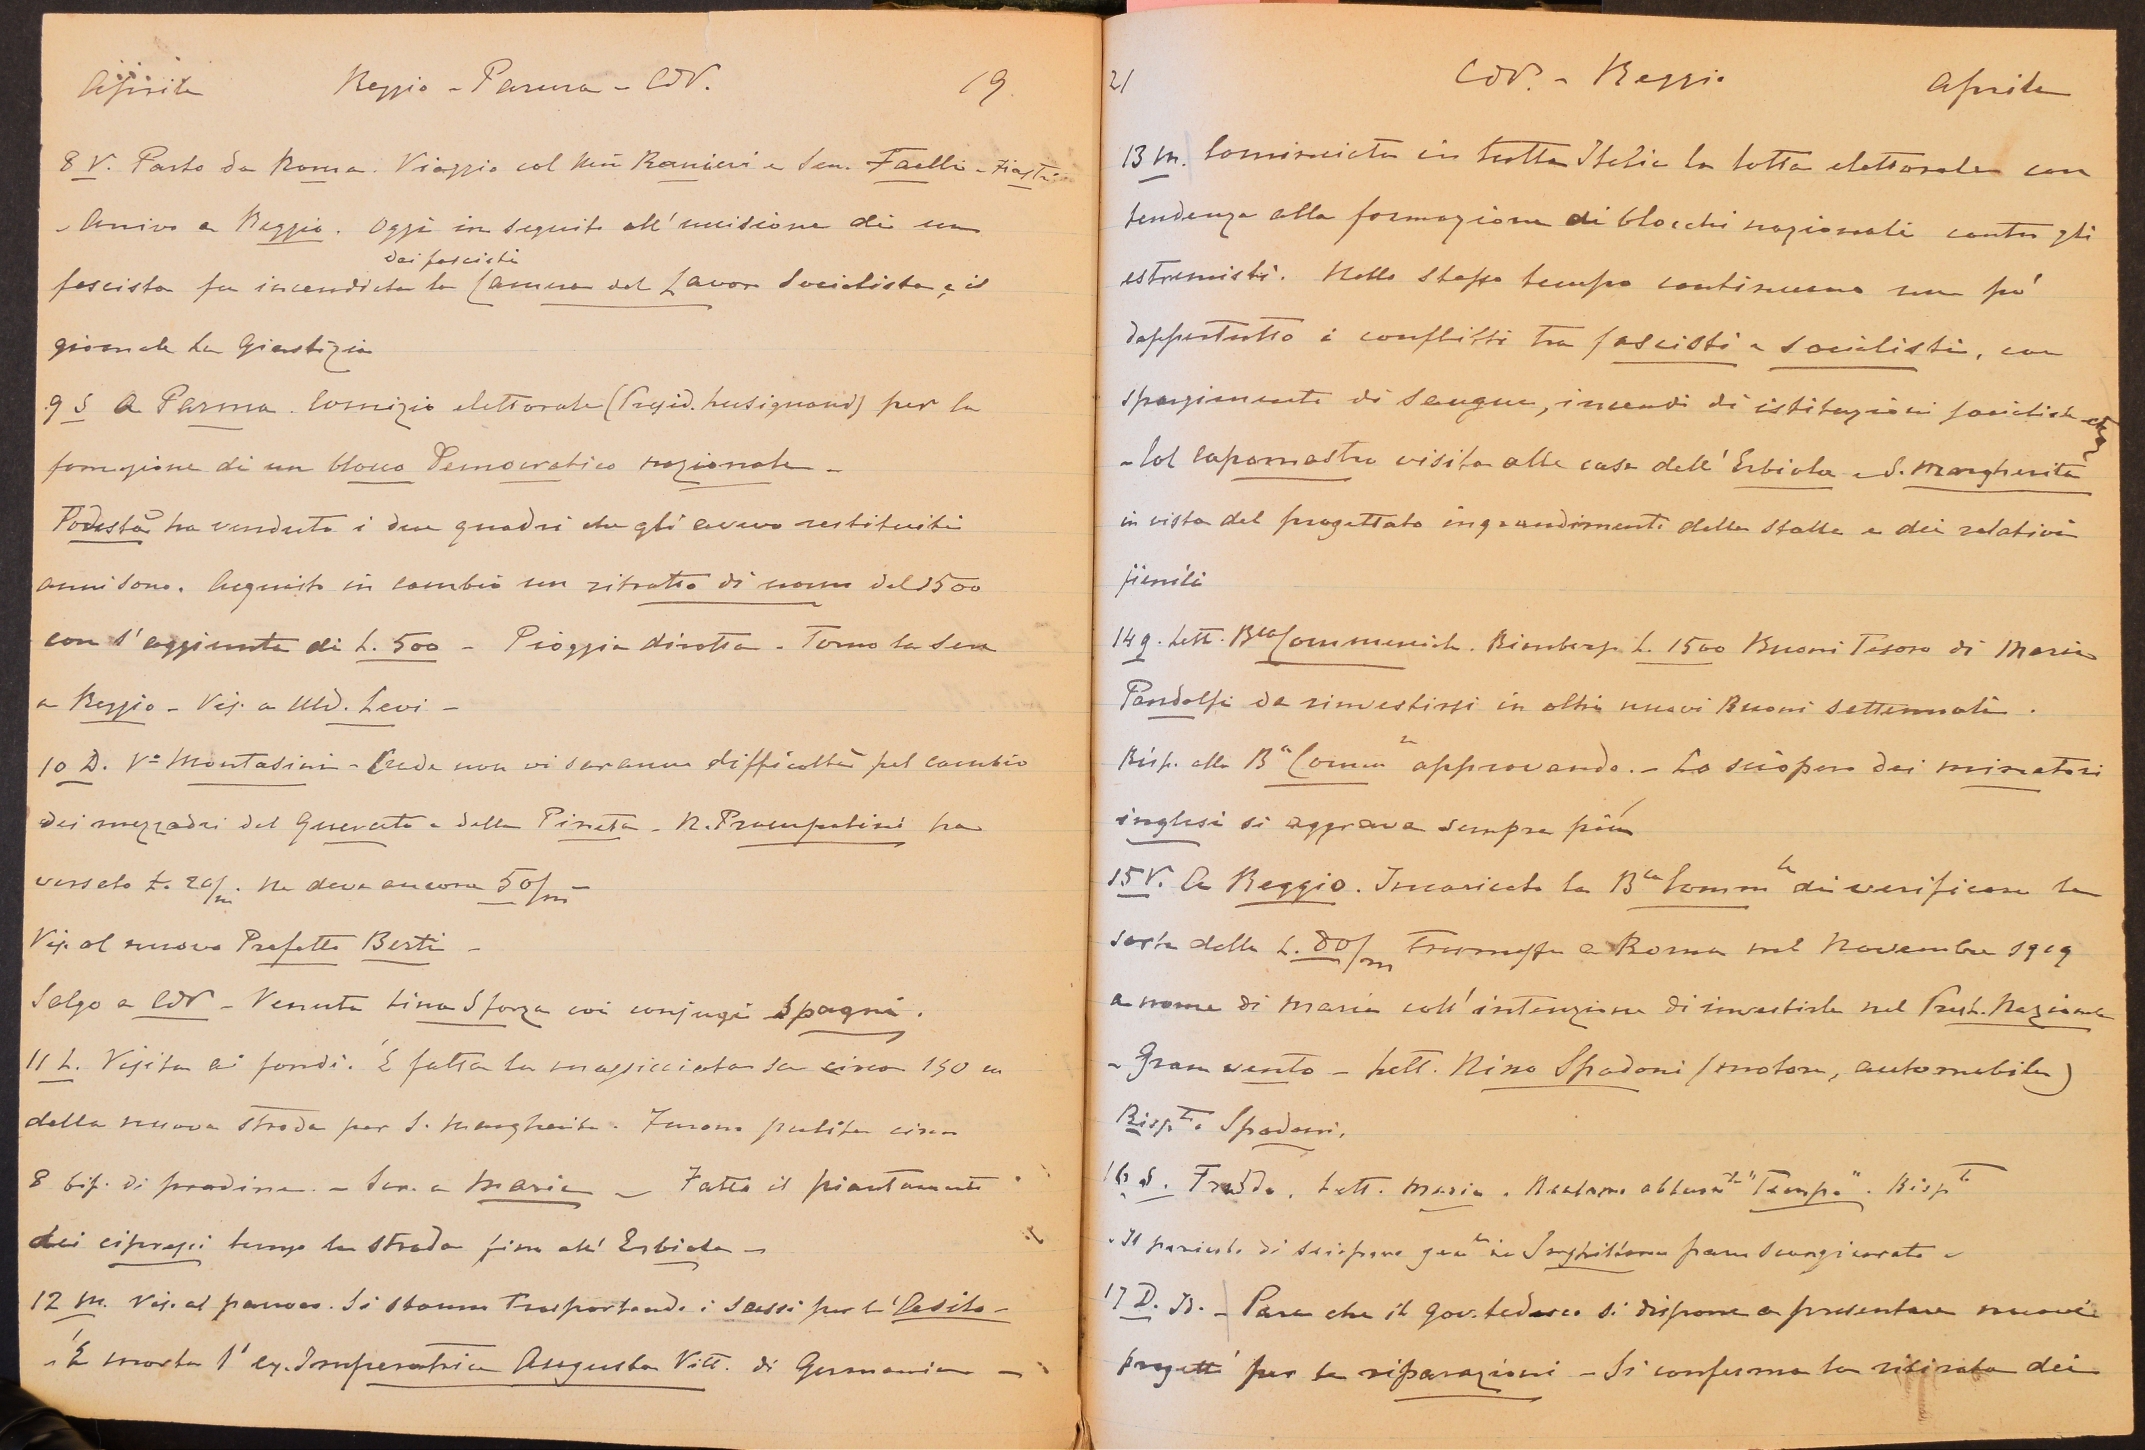 Aprile Reggio - Parma - CdV. 19.
8 V. Parto da Roma. Viaggio col Min Ranieri e Sen. Faelli -
- Arrivo a Reggio. Oggi in seguito all'uccisione di un
dai fascisti
fascista fu incendiata la Camera del Lavoro Socialista, e il
giornale La Giustizia
9 S A Parma. Comizio elettorale (Presid. Lusignani) per la
formazione di un blocco Democratico nazionale -
Podestà ha venduto i due quadri che gli avevo restituiti
anni sono. Acquisto in cambio un ritratto di uomo del 1500
con l'aggiunta di L. 500 - Pioggia dirotta - Torno la sera
a Reggio - Vis. a Uld. Levi -
10 D. Va Montasini - Crede non vi saranno difficoltà pel cambio
dei mezzadri del Querceto e della Pineta - N. Prampolini ha
versato L. 20/m. Ne deve ancora 50/m -
Vis. al nuovo Prefetto Berti -
Salgo a CdV - Venuta Lina Sforza coi conjugi Spagni.
11 L. Visita ai fondi. È fatta la massicciata su circa 150 m
della nuova strada per S. Margherita. Furono pulite circa
8 bif. di pradine. - Scr. a Maria - Fatto il piantamento
dei cipressi lungo la strada fino all'Erbiola -
12 M. Vis. al parroco. Si stanno trasportando i sassi per l'Casilo -
- È morta l'ex. Imperatrice Augusta Vitt. di Germania -
21 CdV. - Reggio Aprile
13 M. Cominciata in tutta Italia la lotta elettorale con
tendenza alla formazione di blocchi nazionali contro gli
estremisti. Nello stesso tempo continuano un pò
dappertutto i conflitti tra fascisti e socialisti, con
spargimento di sangue, incendi di istituzioni socialiste etc
- Col capomastro visita alle case dell'Erbiola e S. Margherita
in vista del progettato ingrandimento delle stalle e dei relativi
fienili
14 g. Lett. Bca Commerciale. Rimbors. L. 1500 Buoni Tesoro di Maria
Pandolfi da rinvestirsi in altri nuovi Buoni settennali.
Risp. alla Ba Comm le approvando. - Lo sciopero dei minatori
inglesi si aggrava sempre più
15 V. A Reggio. Incaricata la Bca Comm le di verificare la
sorte delle L. 80/m trasmesse a Roma nel Novembre 1919
a nome di Maria coll'intenzione di investirle nel Prest. Nazionale
- Gran vento - Lett. Nino Spadoni (motore, automobile)
Risp to a Spadoni.
16 S. Freddo. Lett. Maria. Reclamo abbuon to "Tempo". Risp to
- Il pericolo di sciopero gen le in Inghilterra pare scongiurato -
17 D. Id. - Pare che il gov. tedesco si dispone a presentare nuovi
progetti per le riparazioni - Si conferma la ritirata dei